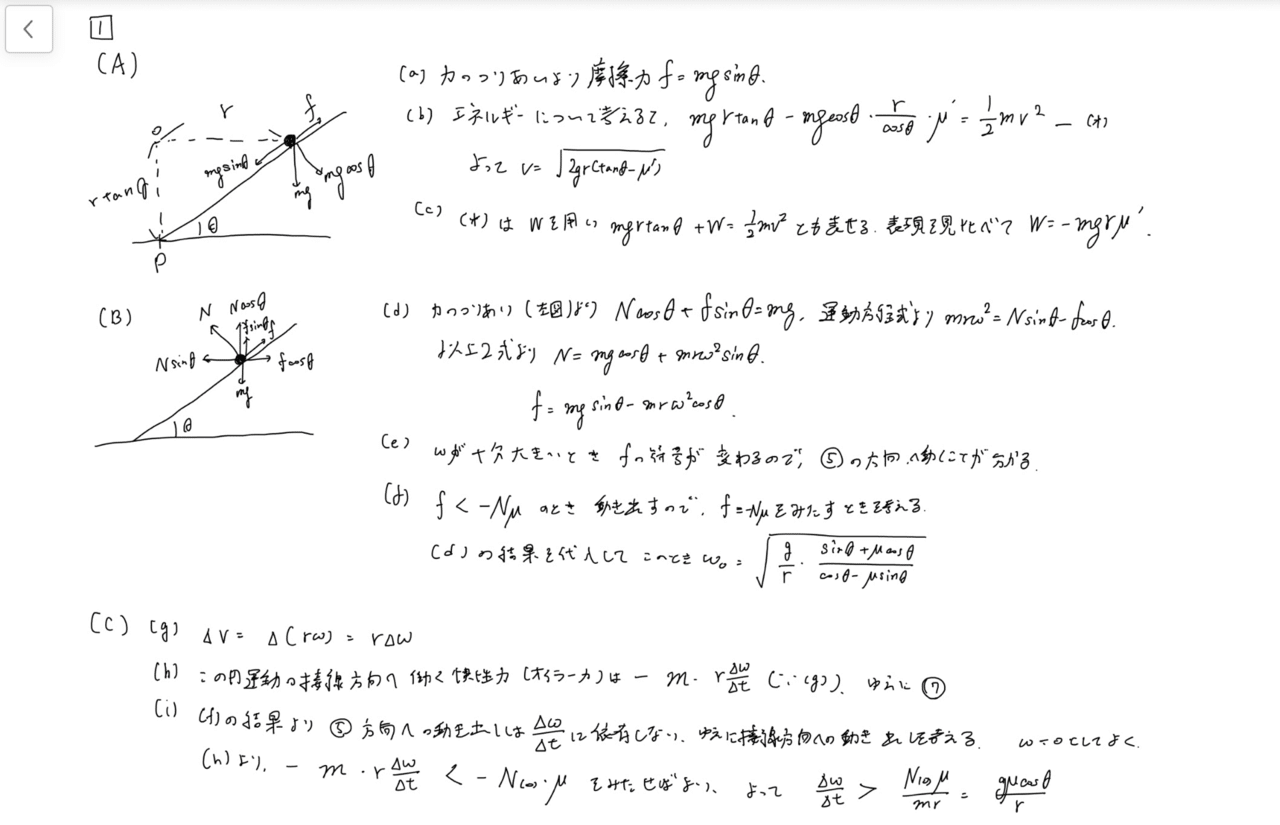 1
(A)
(a) 力のつりあいより摩擦力 f = mg sinθ.
(b) エネルギーについて考えると, mgr tanθ - mg cosθ · r/cosθ · μ' = 1/2 mv² — (*)
よって v = √(2gr(tanθ - μ'))
(c) (*) は Wを用い mgr tanθ + W = 1/2 mv² とも表せる. 表現を見比べて W = -mgrμ'.
r
f
mg sinθ
mg cosθ
mg
r tanθ
θ
P
(B)
(d) 力のつりあい (左図)より N cosθ + f sinθ = mg, 運動方程式より mrω² = N sinθ - f cosθ.
以上2式より N = mg cosθ + mrω² sinθ.
f = mg sinθ - mrω² cosθ.
N
N cosθ
f sinθ
f
N sinθ
f cosθ
mg
θ
(e) ωが十分大きいとき fの符号が変わるので, ⑤の方向へ動くことが分かる.
(f) f < -Nμ のとき 動き出すので, f = -Nμ をみたすときを考える.
(d) の結果を代入して このとき ω₀ = √(g/r · (sinθ + μcosθ)/(cosθ - μsinθ))
(C) (g) Δv = Δ(rω) = rΔω
(h) この円運動の接線方向へ働く慣性力 (オイラー力) は - m · r Δω/Δt (∵(g)). ゆえに ⑦
(i) (f)の結果より ⑤ 方向への動き出しは Δω/Δt に依存しない. ゆえに接線方向への動き出しを考える. ω=0としてよく.
(h)より, - m · r Δω/Δt < - N(0) · μ をみたせばよい, よって Δω/Δt > N(0)μ/mr = gμcosθ/r